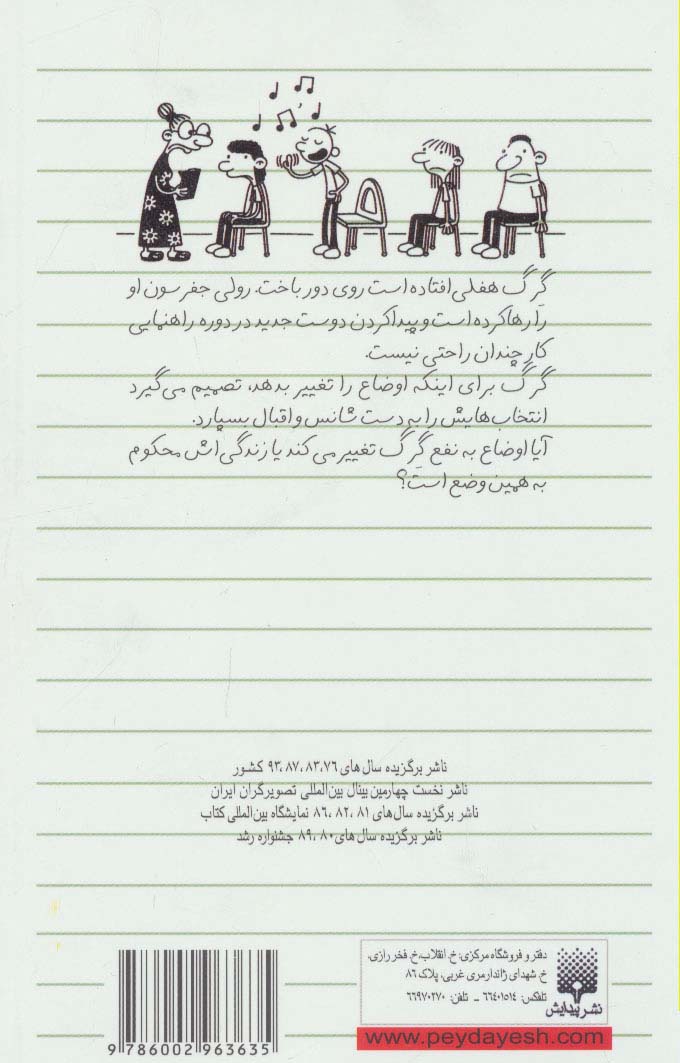 گرگ هفلی افتاده است روی دور باخت. رولی جفرسون او
را رها کرده است و پیدا کردن دوست جدید در دوره راهنمایی
کار چندان راحتی نیست.
گرگ برای اینکه اوضاع را تغییر بدهد، تصمیم می‌گیرد
انتخاب‌هایش را به دست شانس و اقبال بسپارد.
آیا اوضاع به نفع گرگ تغییر می‌کند یا زندگی‌اش محکوم
به همین وضع است؟
ناشر برگزیده سال های ۷۶، ۸۳، ۸۷، ۹۳ کشور
ناشر نخست چهارمین بینال بین‌المللی تصویرگران ایران
ناشر برگزیده سال‌های ۸۱، ۸۲، ۸۶ نمایشگاه بین‌المللی کتاب
ناشر برگزیده سال های ۸۰، ۸۹ جشنواره رشد
دفتر و فروشگاه مرکزی: خ. انقلاب، خ. فخر رازی،
خ. شهدای ژاندارمری غربی، پلاک ۸۶
تلفکس: ۶۶۴۰۱۵۱۴ ـ تلفن: ۶۶۹۷۰۲۷۰
نشر پیدایش
www.peydayesh.com
9 786002 963635